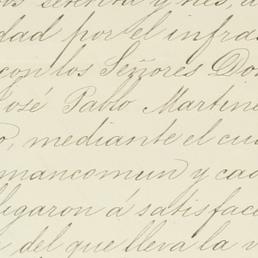 setenta y tres, a
dad por el infras
con los Señores Don
José Pablo Martine
o, mediante el cu
mancomun y cad
llegaron á satisfac
del que lleva la v